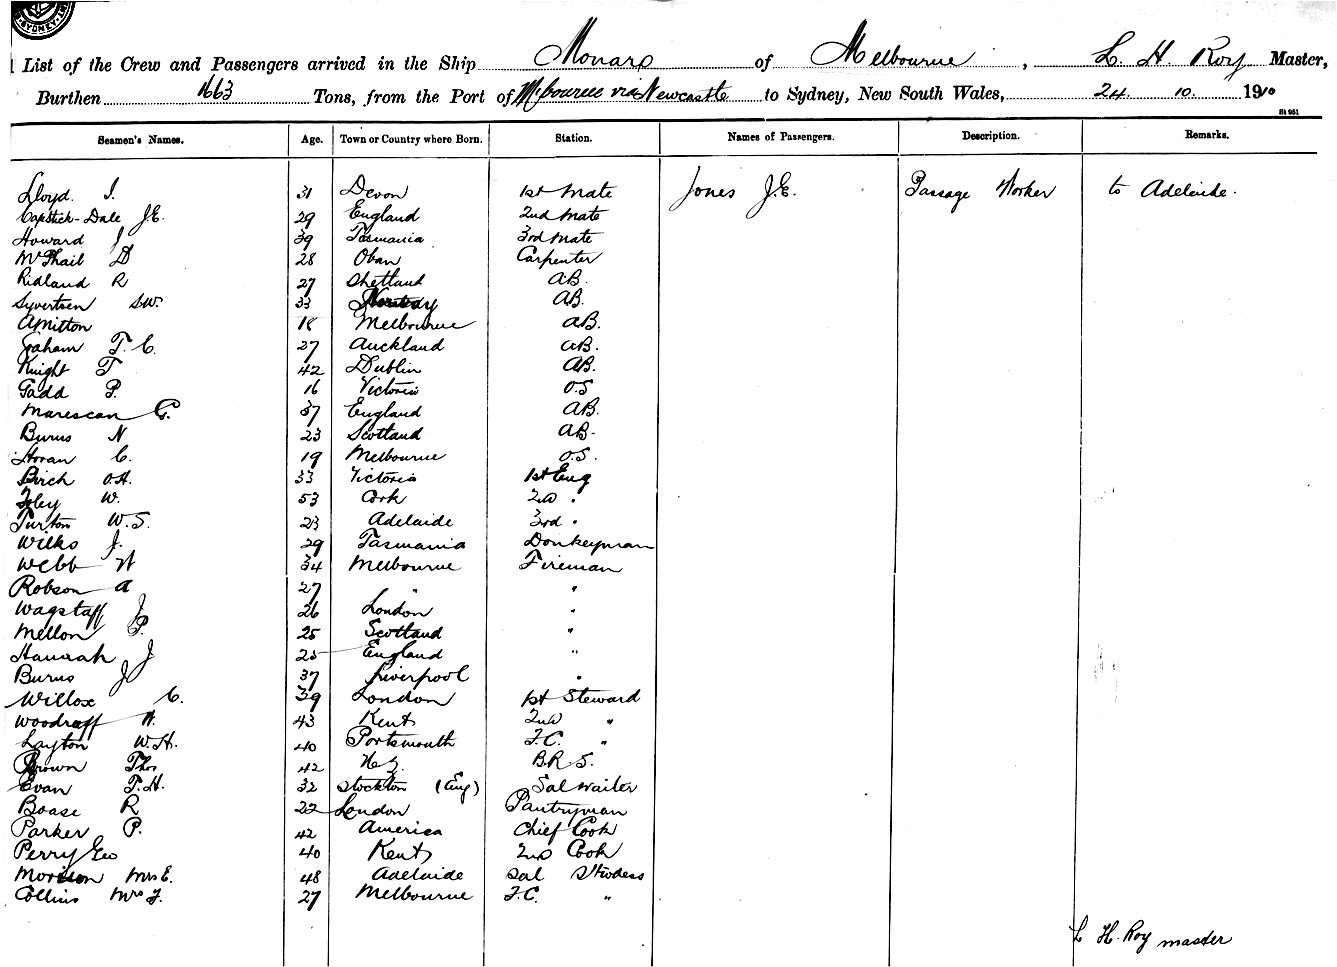 SYDNEY
List of the Crew and Passengers arrived in the Ship Monaro of Melbourne, L. H. Roy Master,
Burthen 1663 Tons, from the Port of Melbourne via Newcastle to Sydney, New South Wales, 24. 10. 1910
St 951
Seamen's Names. Age. Town or Country where Born. Station. Names of Passengers. Description. Remarks.
Lloyd. I. 31 Devon 1st Mate Jones J.E. Passage Worker to Adelaide.
Capstick-Dale J.E. 29 England 2nd Mate
Howard J 39 Tasmania 3rd Mate
McPhail D 28 Oban Carpenter
Ridland R 27 Shetland AB.
Syvertsen S.W. 33 Norway AB.
A Mitton 18 Melbourne AB.
Gaham T. C. 27 Auckland AB.
Knight T 42 Dublin AB.
Gadd P. 16 Victoria O.S
Marescan G. 37 England AB.
Burns N 23 Scotland AB.
Horan C. 19 Melbourne O.S.
Birch O.H. 33 Victoria 1st Eng
Foley W. 53 Cork 2nd "
Turton W.S. 23 Adelaide 3rd "
Wilks J. 29 Tasmania Donkeyman
Webb W 34 Melbourne Fireman
Robson A 27 " "
Wagstaff J 26 London "
Mellon P. 25 Scotland "
Hannah J 25 England "
Burns J 37 Liverpool "
Willox C. 39 London 1st Steward
Woodraff H. 43 Kent 2nd "
Layton W.H. 40 Portsmouth F.C. "
Brown Thos 42 N.Z. B.R.S.
Evan T.H. 32 Stockton (Eng) Sal Waiter
Boase R 22 London Pantryman
Parker P. 42 America Chief Cook
Perry Geo 40 Kent 2nd Cook
Morison Mrs E. 48 Adelaide Sal Stwdess
Collins Mrs F. 27 Melbourne F.C. "
L H. Roy master